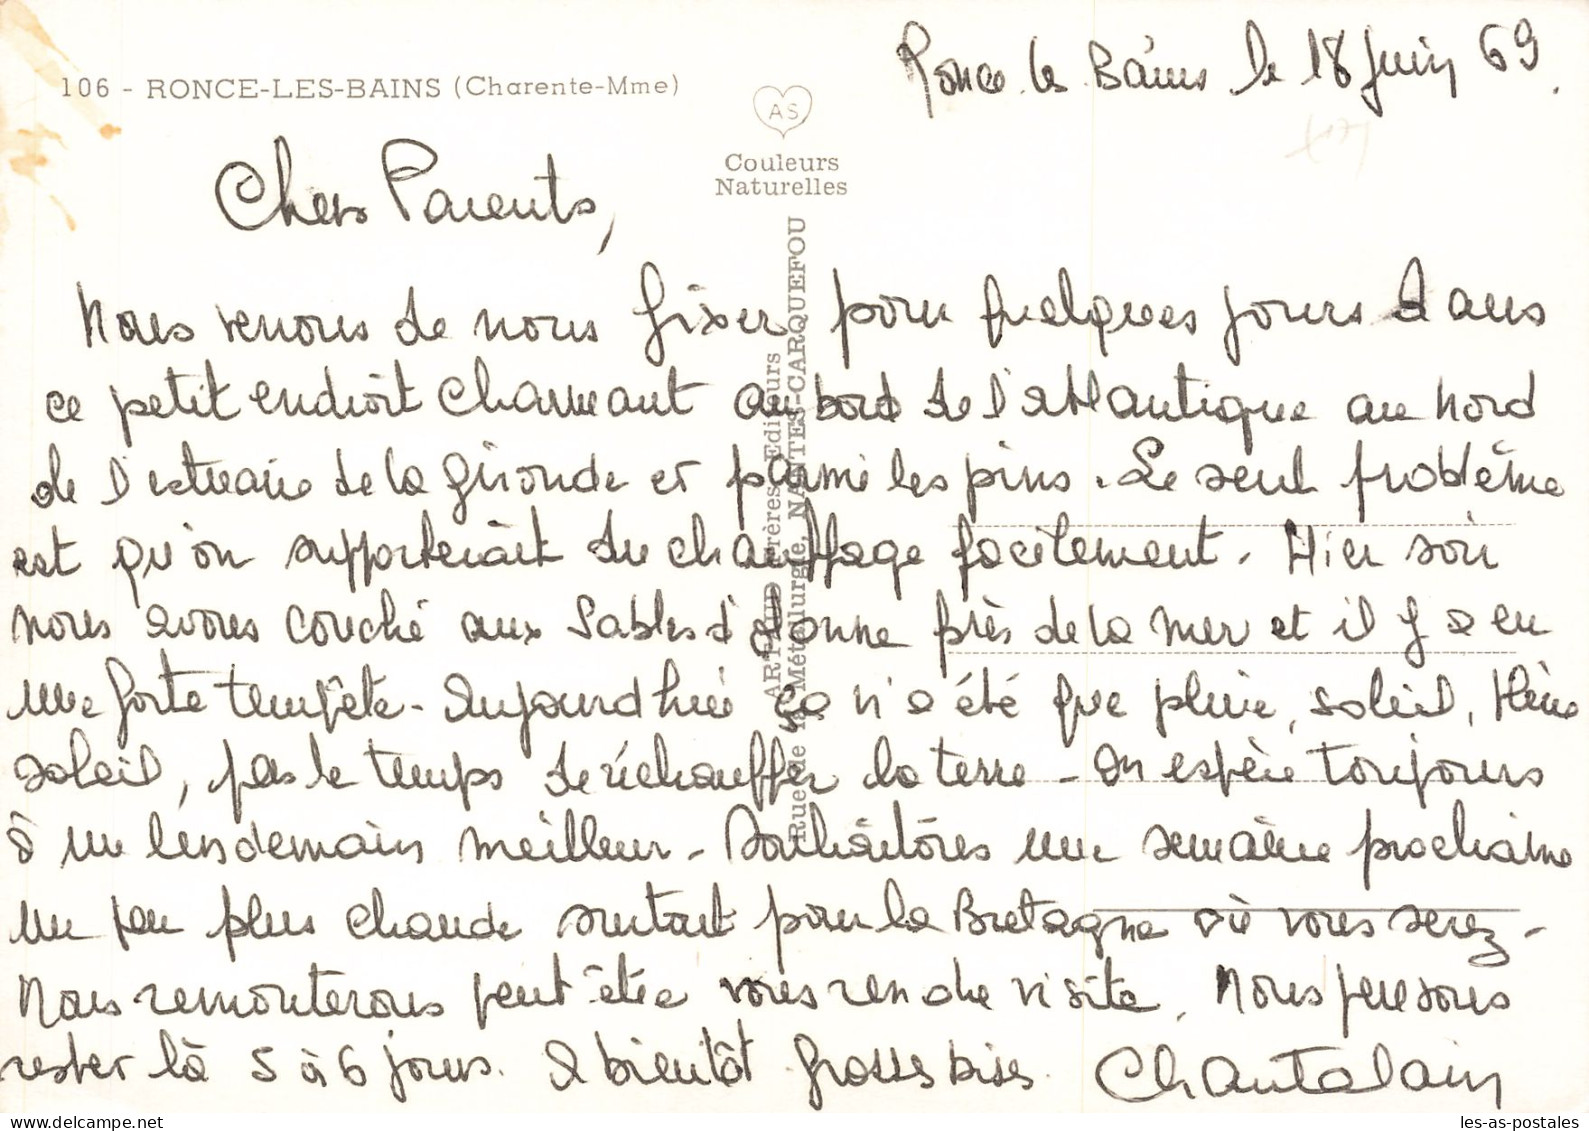 Ronce les Bains le 18 juin 69.
106 - RONCE-LES-BAINS (Charente-Mme)
AS
Couleurs
Naturelles
ARTAUD Frères, Editeurs
Rue de la Métallurgie, NANTES-CARQUEFOU
Chers Parents,
Nous venons de nous fixer pour quelques jours dans
ce petit endroit charmant au bord de l'atlantique au nord
de l'estuaire de la Gironde et parmi les pins. Le seul problème
est qu'on supporterait du chauffage facilement. Hier soir
nous avons couché aux Sables d'Olonne près de la mer et il y a eu
une forte tempête - Aujourd'hui ça n'a été que pluie, soleil, pluie
soleil, pas le temps de réchauffer la terre - On espère toujours
à un lendemain meilleur - Souhaitons une semaine prochaine
un peu plus chaude surtout pour la Bretagne où vous serez -
Nous remonterons peut être vous rendre visite. Nous pensons
rester là 5 à 6 jours. A bientôt grosses bises. Chantalain
les-as-postales